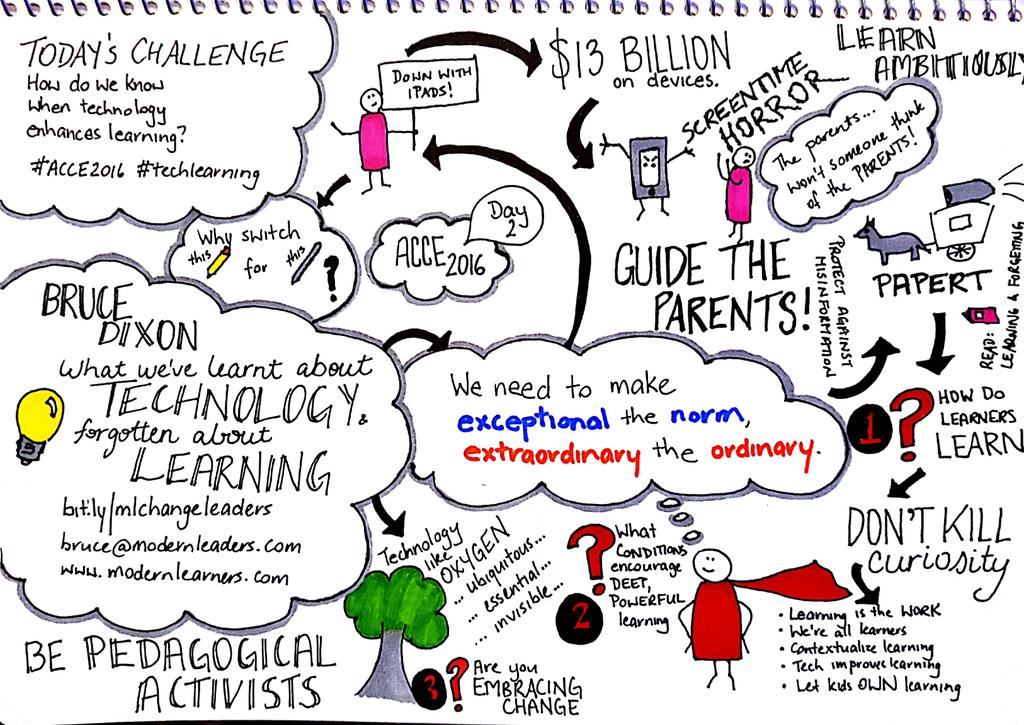 TODAY'S CHALLENGE
How do we know
when technology
enhances learning?
#ACCE2016 #techlearning
DOWN WITH
iPADS!
$13 BILLION
on devices.
LEARN
AMBITIOUSLY
SCREENTIME
HORROR
The parents...
won't someone think
of the PARENTS!
Why switch
this
for
this
?
ACCE
2016
Day
2
GUIDE THE
PARENTS!
PROTECT AGAINST
MISINFORMATION
PAPERT
READ:
LEARNING & FORGETTING
BRUCE
DIXON
What we've learnt about
TECHNOLOGY &
forgotten about
LEARNING
bit.ly/mlchangeleaders
bruce@modernleaders.com
www.modernlearners.com
We need to make
exceptional the norm,
extraordinary the ordinary.
1 ?
HOW DO
LEARNERS
LEARN
DON'T KILL
curiosity
• Learning is the WORK
• We're all learners
• Contextualise learning
• Tech improves learning
• Let kids OWN learning
Technology
like
OXYGEN
... ubiquitous...
... essential...
... invisible...
2 ?
What
CONDITIONS
encourage
DEET,
POWERFUL
learning
3 ?
Are you
EMBRACING
CHANGE
BE PEDAGOGICAL
ACTIVISTS